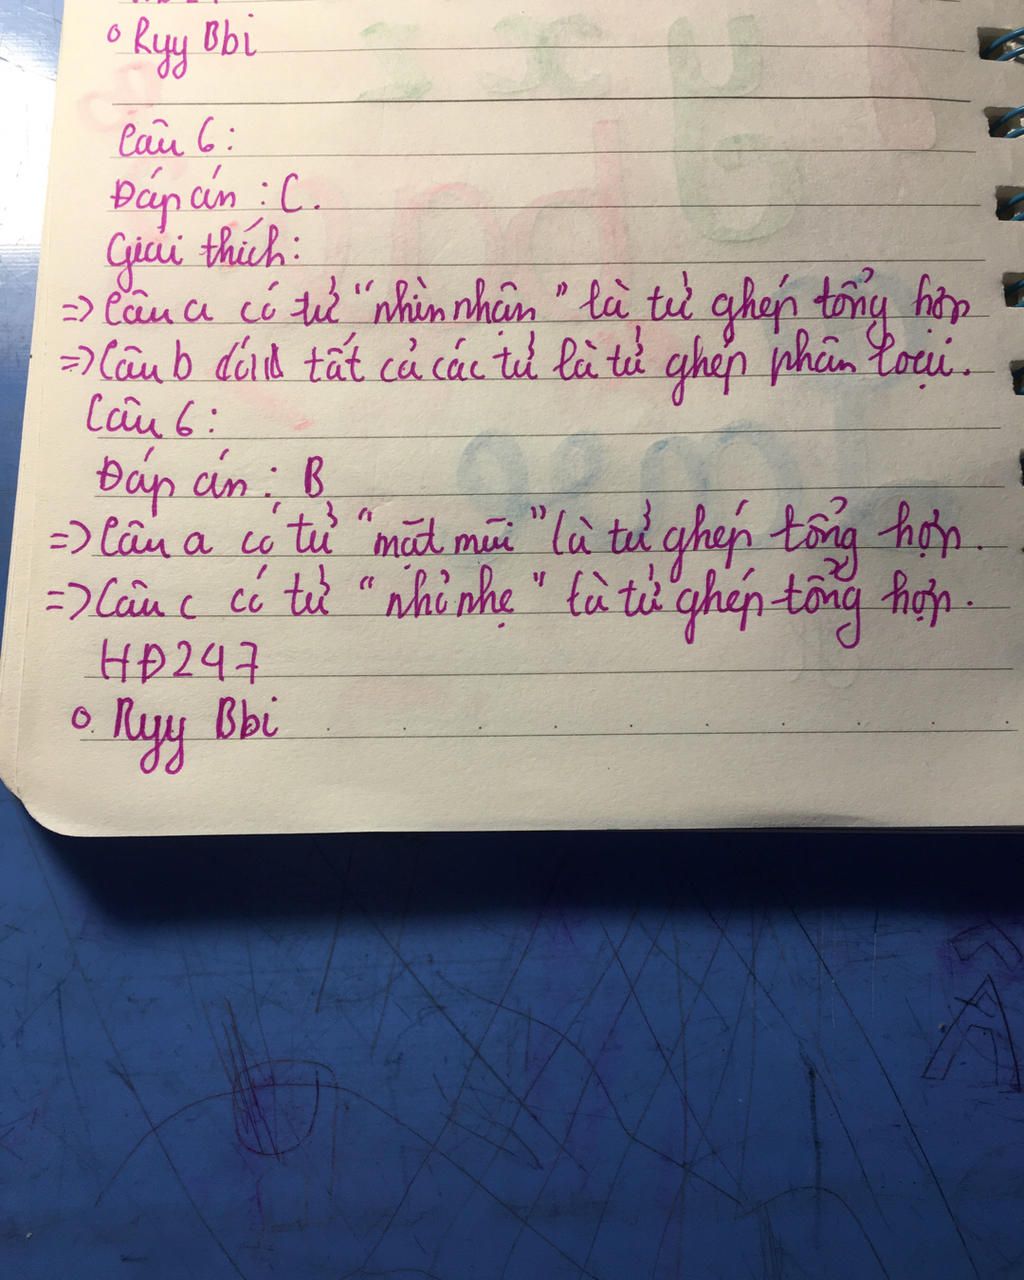 ○ Ryy Bbi
Câu 6:
Đáp án : C.
Giải thích:
=> Câu a có từ "nhìn nhận" là từ ghép tổng hợp
=> Câu b tất cả các từ là từ ghép phân loại.
Câu 6:
Đáp án : B
=> Câu a có từ "mặt mũi" là từ ghép tổng hợp.
=> Câu c có từ "nhỏ nhẹ" là từ ghép tổng hợp.
HĐ247
○ Ryy Bbi